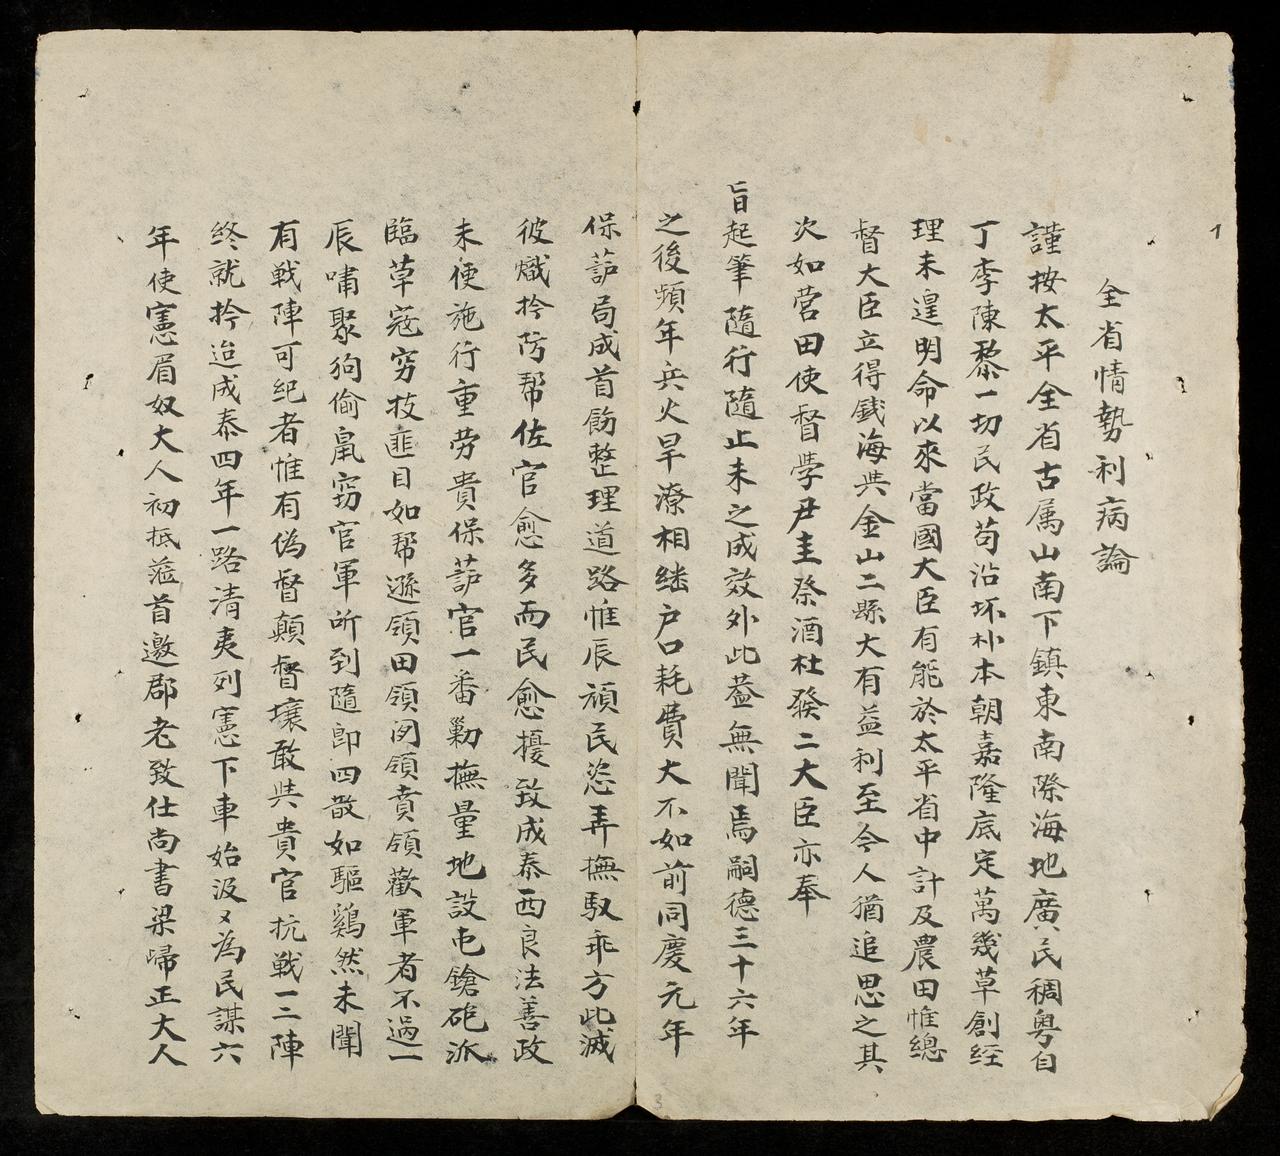 1
全省情勢利病論
謹按太平全省古属山南下鎮東南際海地廣民稠粤自
丁李陳黎一切民政苟沿坏朴本朝嘉隆底定萬幾草創經
理未遑明命以來當國大臣有能於太平省中計及農田惟總
督大臣立得錢海共金山二縣大有益利至今人猶追思之其
次如营田使督學尹圭祭酒杜發二大臣亦奉
旨起筆隨行隨止未之成效外此盖無聞焉嗣德三十六年
之後頻年兵火旱潦相継户口耗費大不如前同慶元年
保護局成首飭整理道路惟辰頑民恣弄撫馭乖方此滅
彼熾拎防帮佐官愈多而民愈擾致成泰西良法善政
未便施行重劳貴保護官一番勦撫量地設屯鎗砲派
臨草寇穷技匪目如帮遜領田領闭領賁領歡軍者不過一
辰嘯聚狗偷鼠窃官軍所到隨即四散如驅鷄然未聞
有戦陣可紀者惟有偽督顛督壤敢共貴官抗戦一二陣
終就拎迨成泰四年一路清夷列憲下車始汲々為民謀六
年使憲眉奴大人初抵蒞首邀郡老致仕尚書梁歸正大人
3